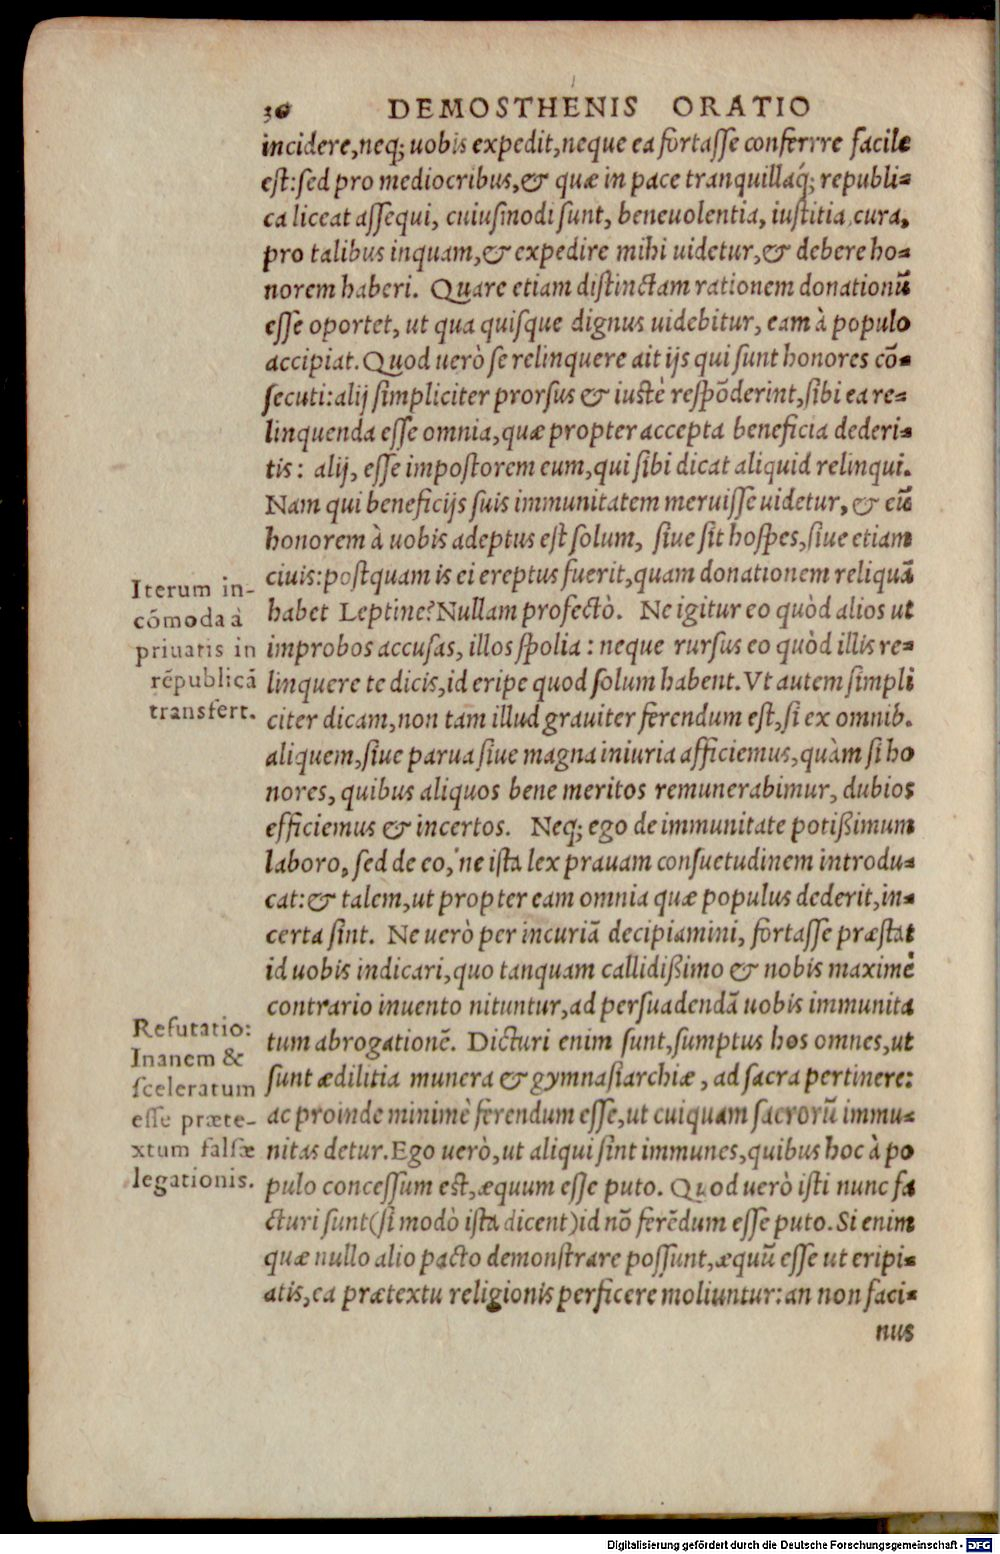 36 DEMOSTHENIS ORATIO
incidere,neq; uobis expedit,neque ea fortasse conferrre facile
est:sed pro mediocribus,& quæ in pace tranquillaq́; republi-
ca liceat assequi, cuiusmodi sunt, beneuolentia, iustitia, cura,
pro talibus inquam,& expedire mihi uidetur,& debere ho-
norem haberi. Quare etiam distinctam rationem donationũ
esse oportet, ut qua quisque dignus uidebitur, eam à populo
accipiat. Quod uerò se relinquere ait ijs qui sunt honores cõ-
secuti:alij simpliciter prorsus & iustè respõderint,sibi ea re-
linquenda esse omnia,quæ propter accepta beneficia dederi-
tis: alij, esse impostorem eum,qui sibi dicat aliquid relinqui.
Nam qui beneficijs suis immunitatem meruisse uidetur, & eũ
honorem à uobis adeptus est solum, siue sit hospes,siue etiam
ciuis:postquam is ei ereptus fuerit,quam donationem reliquã
habet Leptine? Nullam profectò. Ne igitur eo quòd alios ut
improbos accusas, illos spolia: neque rursus eo quòd illis re-
linquere te dicis,id eripe quod solum habent. Vt autem simpli
citer dicam,non tam illud grauiter ferendum est,si ex omnib.
aliquem,siue parua siue magna iniuria afficiemus,quàm si ho
nores, quibus aliquos bene meritos remunerabimur, dubios
efficiemus & incertos. Neq; ego de immunitate potißimum
laboro, sed de eo, ne ista lex prauam consuetudinem introdu-
cat:& talem,ut propter eam omnia quæ populus dederit,in-
certa sint. Ne uerò per incuriã decipiamini, fortasse præstat
id uobis indicari,quo tanquam callidißimo & nobis maximè
contrario inuento nituntur,ad persuadendã uobis immunita
tum abrogationẽ. Dicturi enim sunt,sumptus hos omnes,ut
sunt ædilitia munera & gymnasiarchiæ, ad sacra pertinere:
ac proinde minimè ferendum esse,ut cuiquam sacrorũ immu-
nitas detur. Ego uerò,ut aliqui sint immunes,quibus hoc à po
pulo concessum est,æquum esse puto. Quod uerò isti nunc fa
cturi sunt(si modò ista dicent)id nõ ferẽdum esse puto. Si enim
quæ nullo alio pacto demonstrare possunt,æquũ esse ut eripi-
atis,ea prætextu religionis perficere moliuntur: an non faci-
nus
Iterum in-
cõmoda à
priuatis in
rẽpublicã
transfert.
Refutatio:
Inanem &
sceleratum
esse præte-
xtum falsæ
legationis.
Digitalisierung gefördert durch die Deutsche Forschungsgemeinschaft - DFG